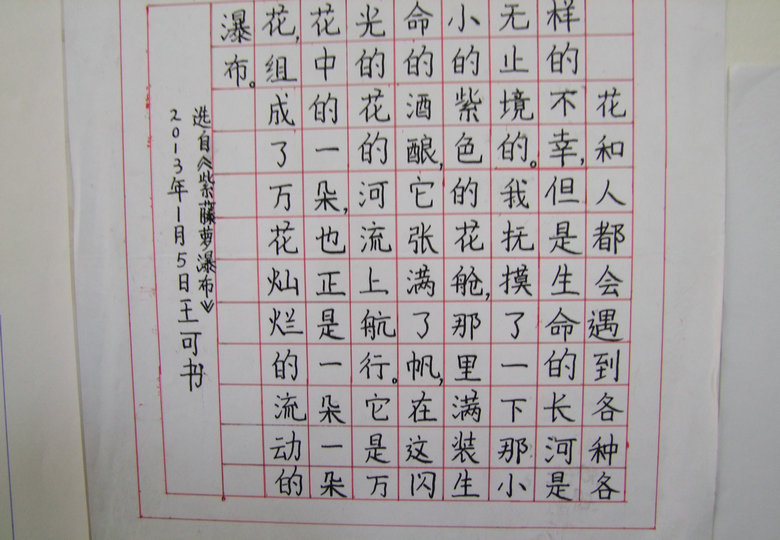 花和人都会遇到各种各
样的不幸,但是生命的长河是
无止境的。我抚摸了一下那小
小的紫色的花舱,那里满装生
命的酒酿,它张满了帆,在这闪
光的花的河流上航行。它是万
花中的一朵,也正是一朵一朵
花,组成了万花灿烂的流动的
瀑布。
选自《紫藤萝瀑布》
2013年1月5日王可书